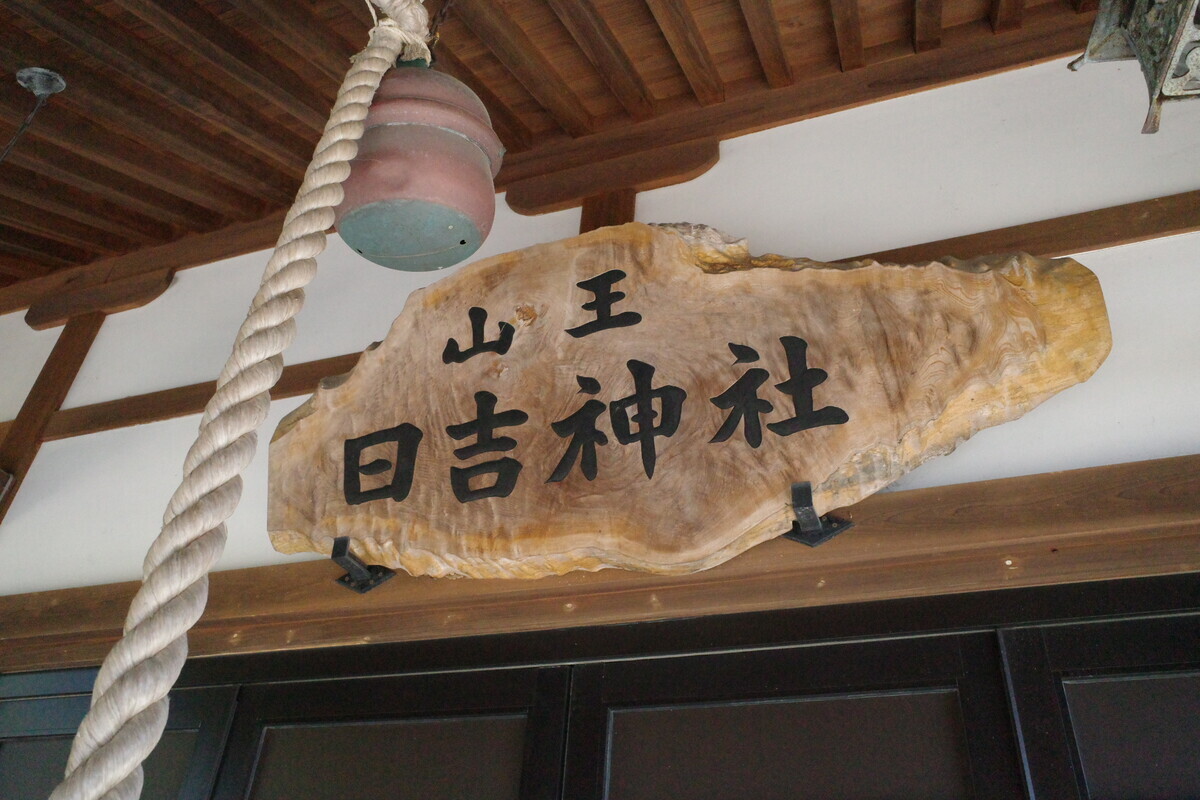 山王
日吉神社